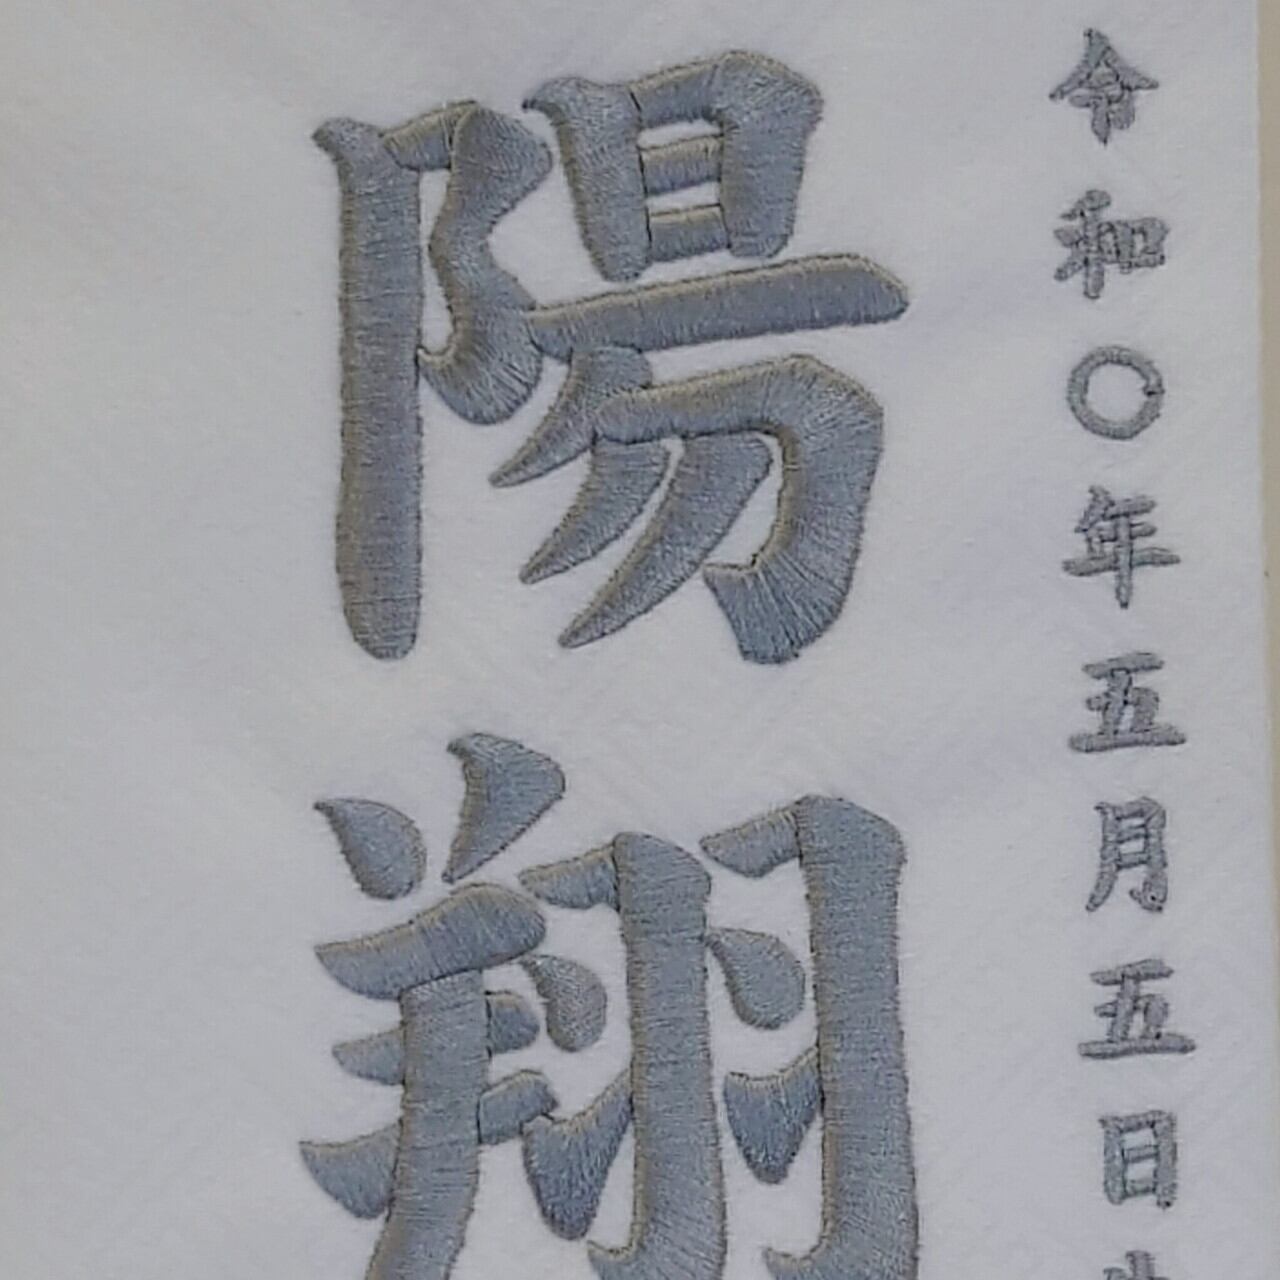 令和〇年五月五日
陽翔